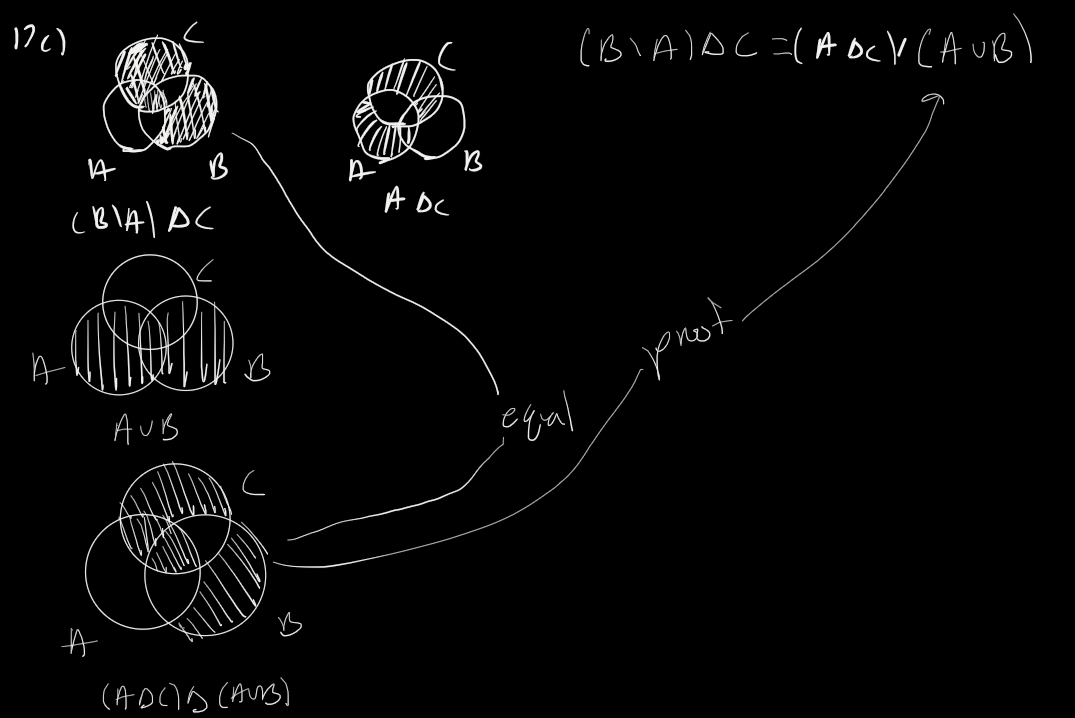 17c)
C
A
B
(B\A) Δ C
C
A
B
A Δ C
(B\A) Δ C = (A Δ C) \ (A ∪ B)
C
A
B
A ∪ B
equal
proof
C
A
B
(A Δ C) Δ (A ∪ B)